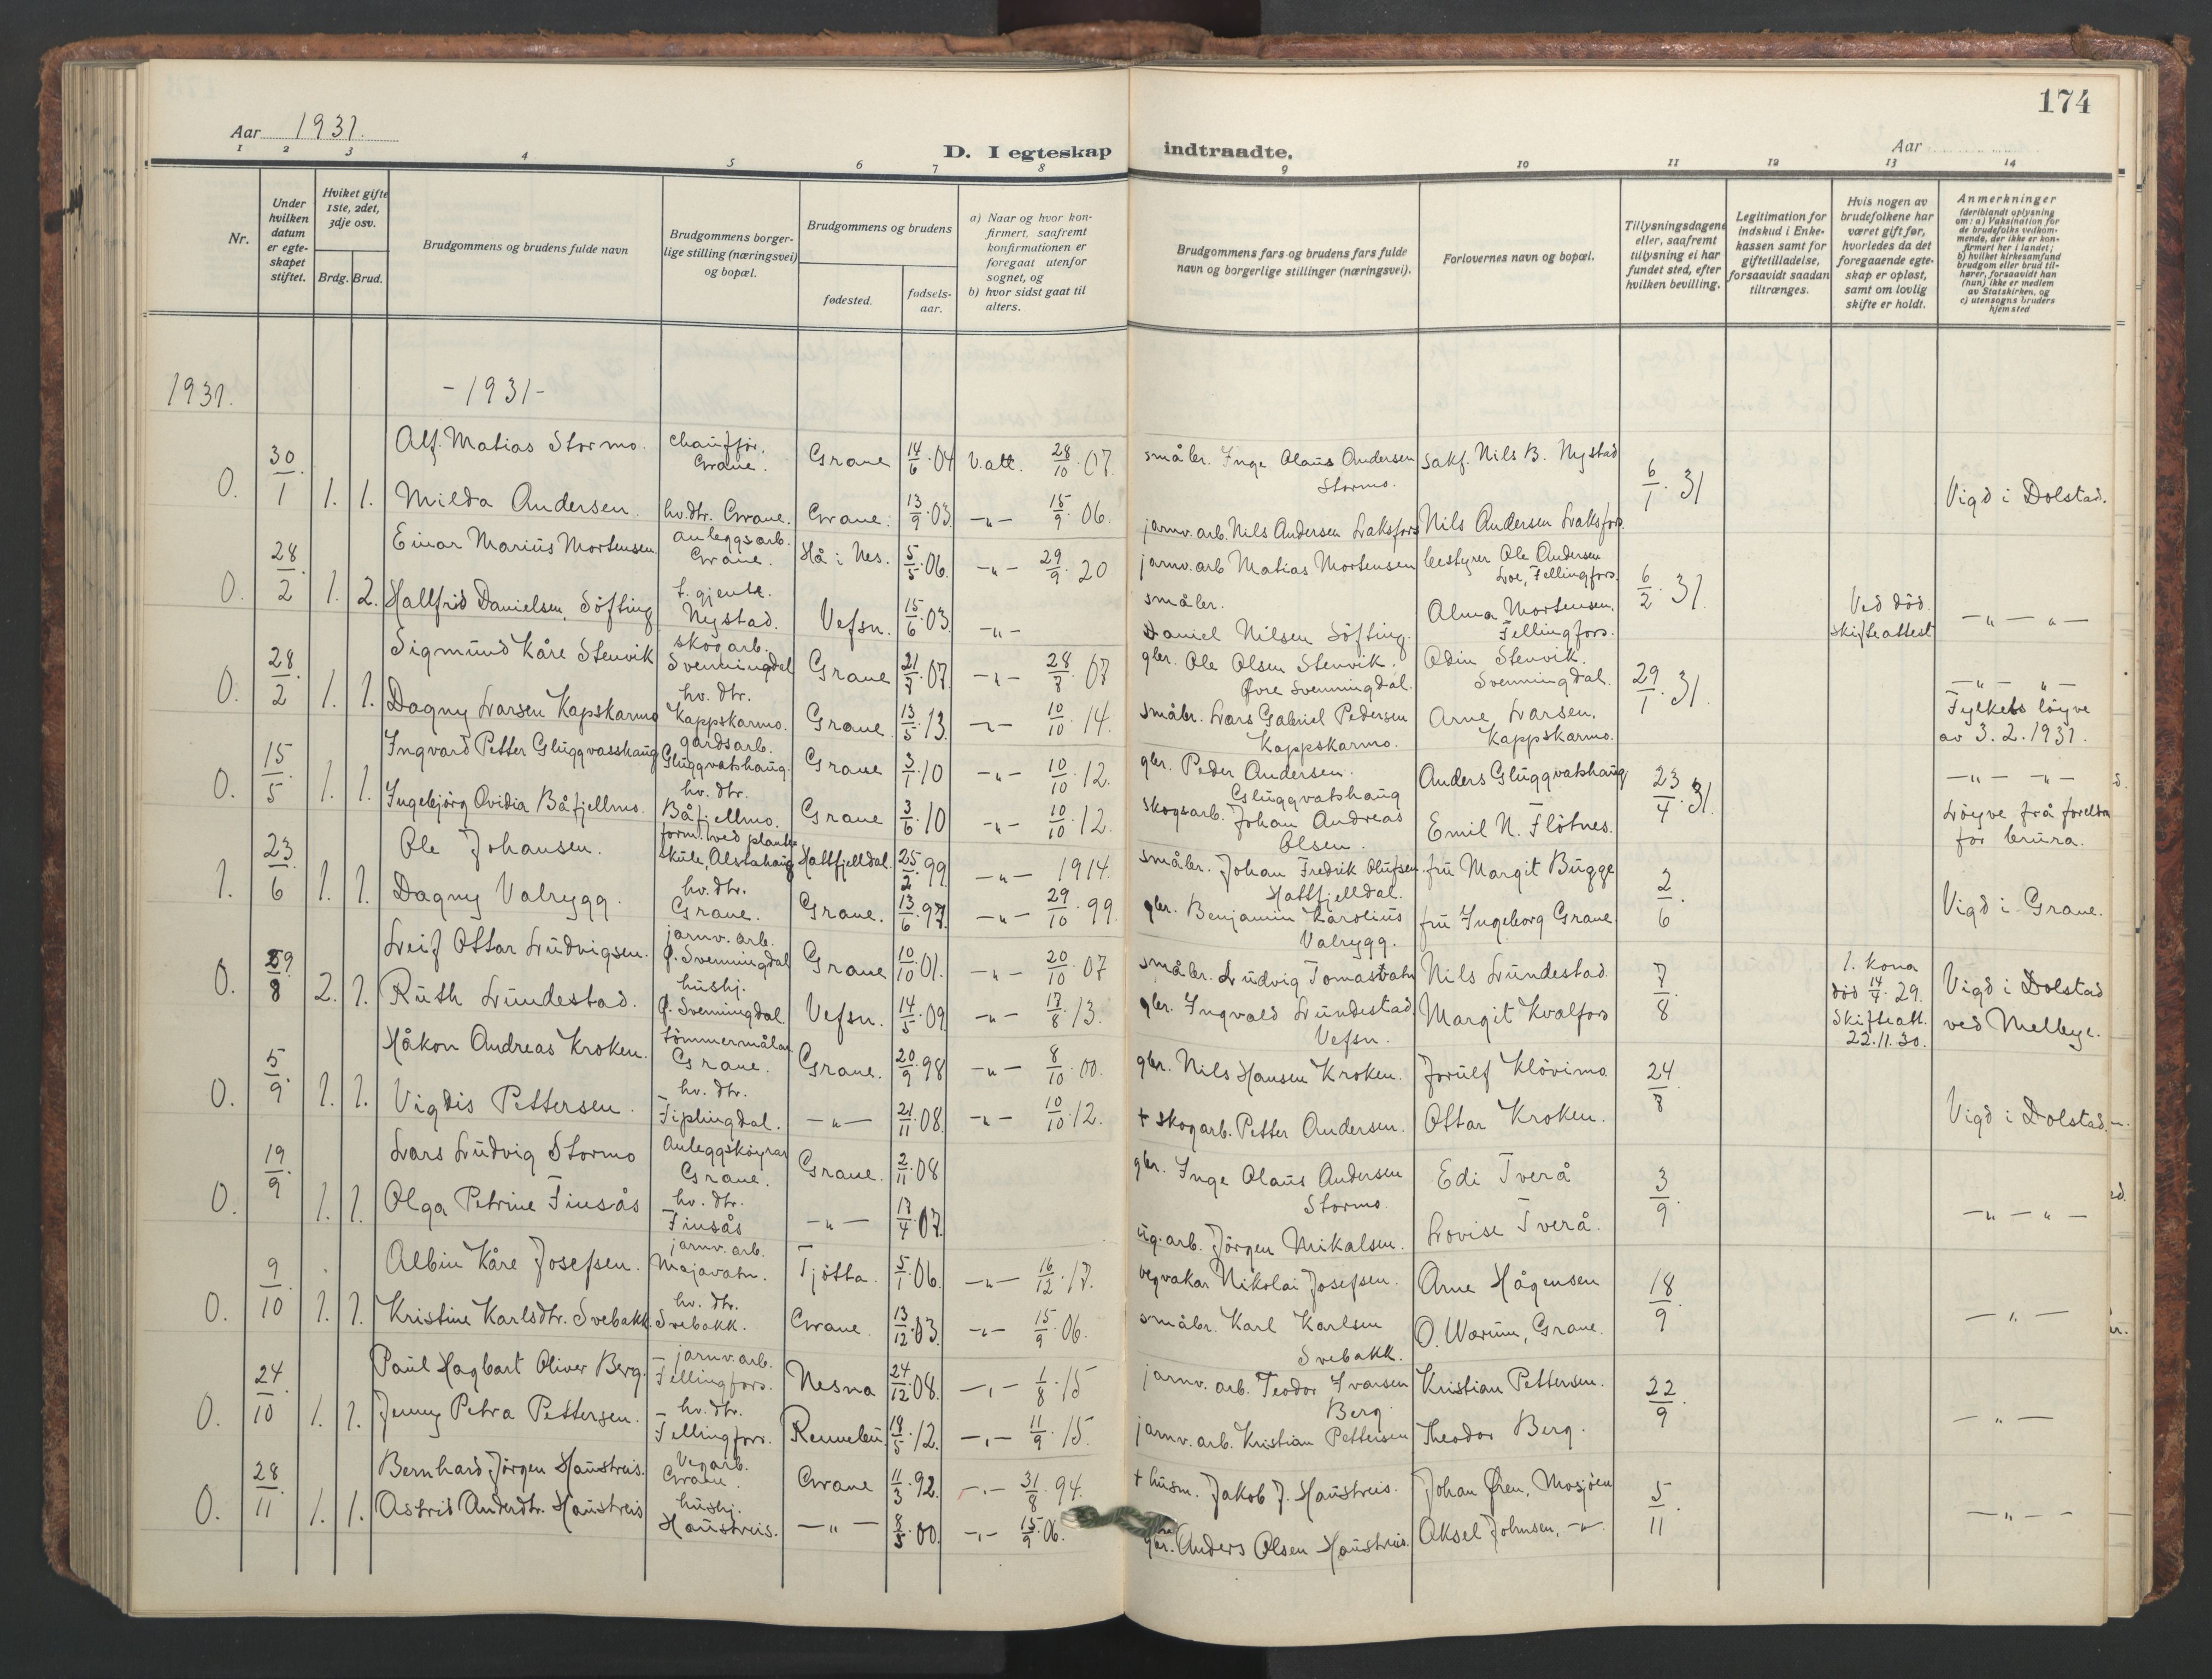 174
Aar 1931.
D. I egteskap indtraadte.
Aar
1 2 3 4 5 6 7 8 9 10 11 12 13 14
Nr.
Under hvilken datum er egteskapet stiftet.
Hvilket gifte 1ste, 2det, 3dje osv.
Brdg. Brud.
Brudgommens og brudens fulde navn
Brudgommens borgerlige stilling (næringsvei) og bopæl.
Brudgommens og brudens
fødested.
fødselsaar.
a) Naar og hvor konfirmert, saafremt konfirmationen er foregaat utenfor sognet, og
b) hvor sidst gaat til alters.
Brudgommens fars og brudens fars fulde navn og borgerlige stillinger (næringsvei).
Forlovernes navn og bopæl.
Tillysningsdagene eller, saafremt tillysning ei har fundet sted, efter hvilken bevilling.
Legitimation for indskud i Enkekassen samt for giftetilladelse, forsaavidt saadan tiltrænges.
Hvis nogen av brudefolkene har været gift før, hvorledes da det foregaaende egteskap er opløst, samt om lovlig skifte er holdt.
Anmerkninger (deriblandt oplysning om: a) Vaksination for de brudefolks vedkommende, der ikke er konfirmert her i landet; b) hvilket kirkesamfund brudgom eller brud tilhører, forsaavidt han (hun) ikke er medlem av Statskirken, og c) utensogns bruders hjemsted
1931. -1931-
0. 30/1 1. 1. Alf Matias Stormo. chauffør. Grane. Grane 14/6.04 V.att. 28/10.07. småbr. Inge Olaus Andersen Stormo. Sakf. Nils B. Nystad 6/1.31 Vigd i Dolstad.
Milda Andersen. hv.dtr. Grane. Grane. 13/9.03. -"- 15/9.06. jarnv.arb. Nils Andersen Laksfors Nils Andersen Laksfors.
0. 28/2 1. 2. Einar Marius Mortensen. anleggsarb. Grane. Hå i Nes. 5/5.06. -"- 29/9.20 jarnv.arb Matias Mortensen bestyrer Ole Andersen Loe, Fellingfors. 6/2.31. Ved død. Skifteattest -"- -"-
Hallfrid Danielsen, Söfting t. gjente. Nystad. Vefsn. 15/6.03. -"- småbr. Daniel Nilsen Söfting. Alma Mortensen. Fellingfors.
0. 28/2 1. 1. Sigmund Kåre Stenvik skogarb. Svenningdal Grane 21/7.07. -"- 28/8.07 gbr. Ole Olsen Stenvik. Øvre Svenningdal. Odin Stenvik. Svenningdal. 29/1.31. -"- -"-
Dagny Larsen Kapskarmo hv. dtr. Kappskarmo. Grane 13/5.13. -"- 10/10.14. småbr. Lars Gabriel Pedersen Kappskarmo. Arne Larsen. Kappskarmo. Fylkets löyve av 3.2.1931.
0. 15/5. 1. 1. Ingvard Petter Gluggvasshaug gardsarb. Gluggvatshaug. Grane 3/1.10 -"- 10/10.12. gbr. Peder Andersen. Gluggvatshaug Anders Gluggvatshaug 23/4.31. -"- -"-
Ingebjörg Ovidia Båfjellmo. hv. dtr. Båfjellmo. Grane 3/6.10 -"- 10/10.12. skogsarb. Johan Andreas Olsen. Emil N. Flötnes. Löyve frå foreldra for brura.
1. 23/6 1. 1. Ole Johansen. form. ved planteskule, Alstahaug Hattfjelldal. 25/2.99. -"- 1914. småbr. Johan Fredrik Olufsen. Hattfjelldal. fru Margit Bugge 2/6. Vigd i Grane.
Dagny Valrygg. hv. dtr. Grane. Grane. 13/6.97. -"- 29/10.99. gbr. Benjamin Karolius Valrygg. fru Ingeborg Grane
0. 29/8 2. 1. Leif Ottar Ludvigsen. jarnv. arb. Ø. Svenningdal Grane 10/10.01. -"- 20/10.07 småbr. Ludvig Tomasvatn Nils Lundestad. 7/8 1. kona død 14/4.29. Skifteatt. 22.11.30. Vigd i Dolstad ved Mellbye.
Ruth Lundestad. hushj. Ø. Svenningdal. Vefsn. 14/5.09. -"- 17/8.13. gbr. Ingvald Lundestad. Vefsn. Margit Kvalfors
0. 5/9. 1. 1. Håkon Andreas Kroken. tömmermålar Grane. Grane. 20/9.98 -"- 8/10.00. gbr. Nils Hansen Kroken. Jorulf Klövimo 24/8 Vigd i Dolstad.
Vigdis Pettersen. hv. dtr. Fiplingdal. -"- 21/11.08. -"- 10/10.12. + skogarb. Petter Andersen. Ottar Kroken.
0. 19/9. 1. 1. Lars Ludvig Stormo anleggsköyrar Grane. Grane. 2/11.08 gbr. Inge Olaus Andersen Stormo. Edi Tverå 3/9. -"- -"-
Olga Petrine Finsås hv. dtr. Finsås -"- 17/4.07. ug.arb. Jörgen Mikalsen. Lovise Tverå.
0. 9/10 1. 1. Albin Kåre Josefsen. jarnv. arb. Majavatn. Tjötta. 5/1.06. -"- 16/12.17. vegvakar Nikolai Josefsen. Arne Hågensen 18/9. -"-
Kristine Karlsdtr. Svebakk. hv. dtr. Svebakk. Grane. 13/12.03. -"- 15/9.06. småbr. Karl Karlsen Svebakk. O. Warum, Grane.
0. 24/10. 1. 1. Paul Hagbart Oliver Berg. jarnv.arb. Fellingfors. Nesna 24/12.08. -"- 1/8.15 jarnv. arb. Teodor Ivarsen Berg. Kristian Pettersen. 22/9. -"-
Jenny Petra Pettersen. hv. dtr. Fellingfors. Rennebu. 18/5.12. -"- 11/9.15. jarnv.arb. Kristian Pettersen Theodor Berg.
0. 28/11 1. 1. Bernhard Jörgen Haustreis. Vegarb. Grane. Grane 11/3.92. -"- 31/8.94. + husm. Jakob J. Haustreis. Johan Øren, Mosjøen 5/11. -"-
Astrid Andersdtr. Haustreis hushj. Haustreis. -"- 8/5.00. -"- 15/9.06. gbr. Anders Olsen Haustreis. Aksel Johnsen, -"-